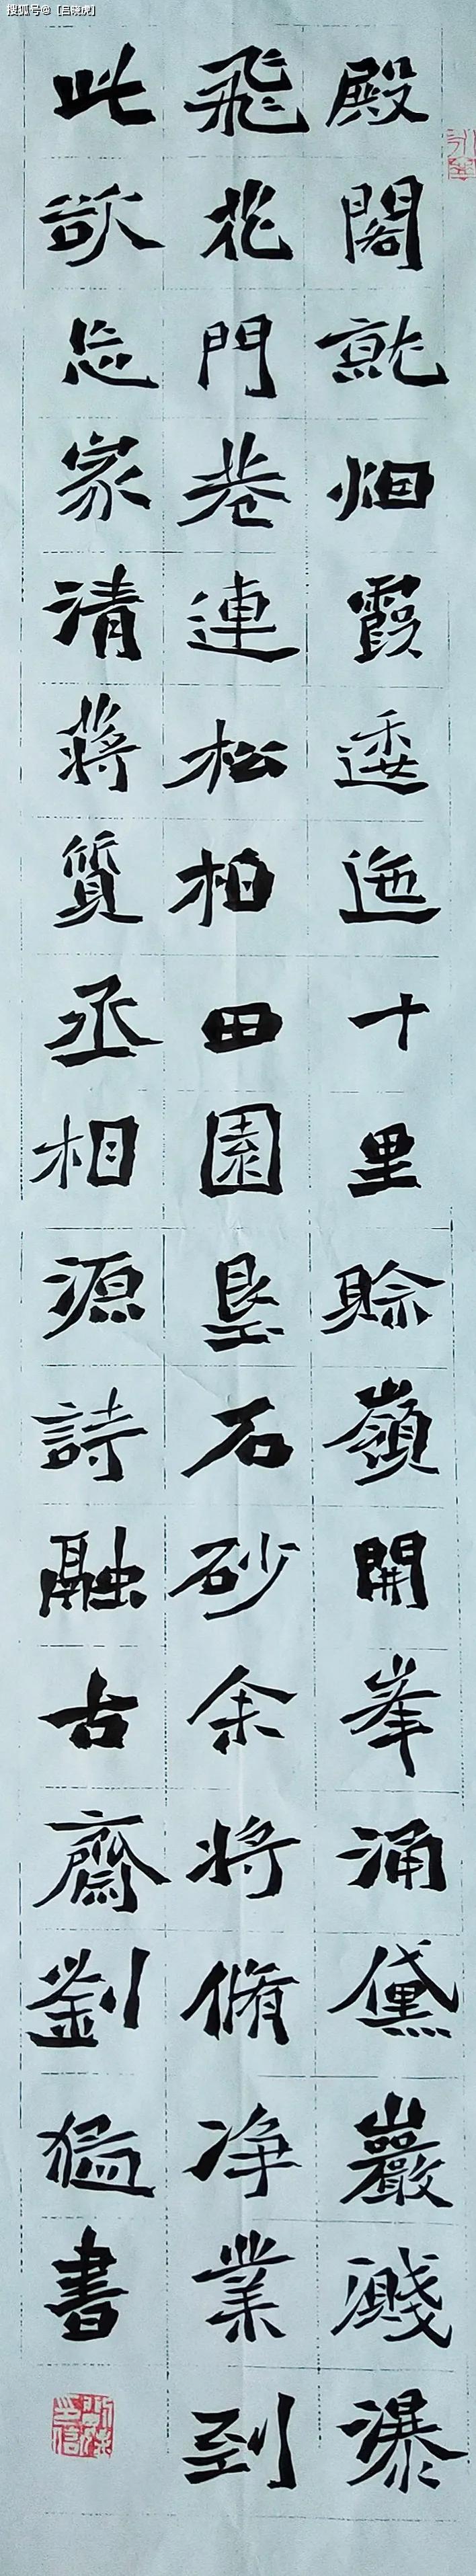 搜狐号@【吕晓虎】
殿閣就烟霞逶迤十里賒嶺開峯涌黛巖濺瀑
飛花門巷連松柏田園墾石砂余將脩净業到
此欲忘家清蔣質丞相源詩融古齋劉猛書